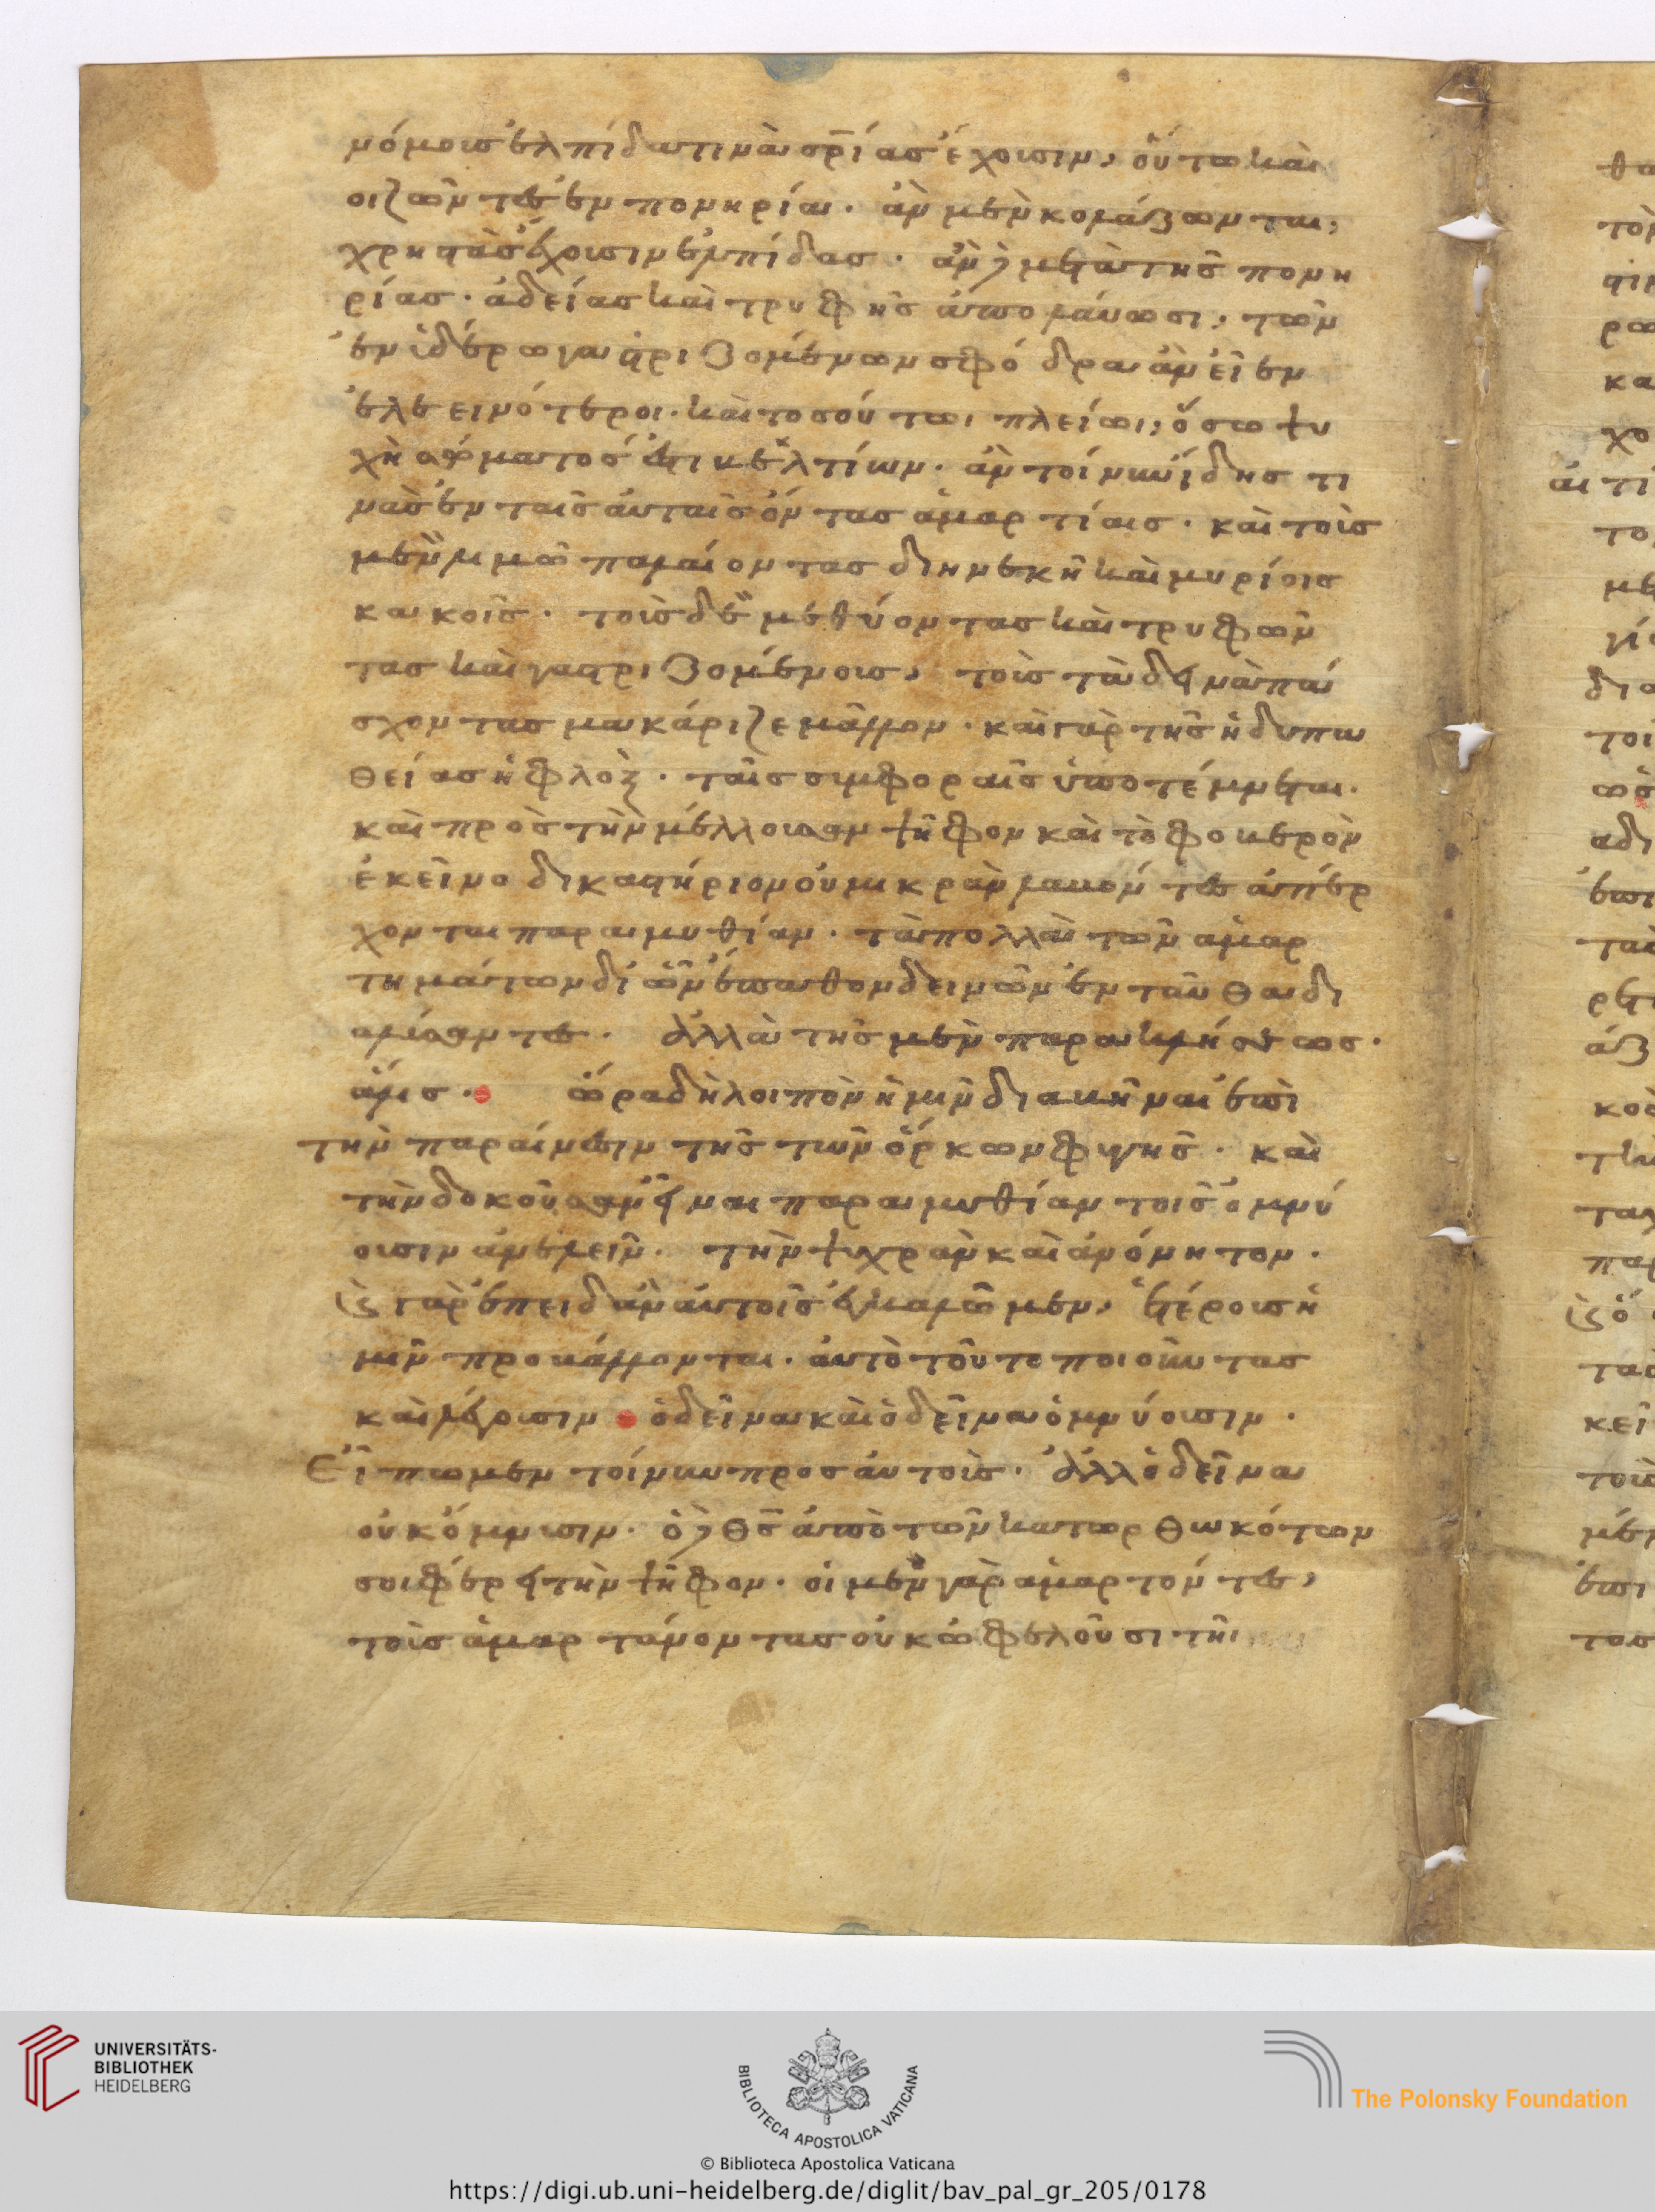 νόμοις ἐλπίδα τινὰ σρίας ἔχουσιν, οὕτω καὶ
οι ζῶντες ἐν πονηρία. ἀν μὲν κολάζωνται,
χρηστὰς ἔχουσιν ἐλπίδας. ἀν δὲ μετὰ τῆς πονη
ρίας. ἀδείας καὶ τρυφῆς ἀπολαύωσι, τῶν
ἐν ἱδέρω γαστριζομένων σφόδρα ἀν εἶεν
ἐλεεινότεροι. καὶ τοσούτωι πλείωι, ὅσω ψυ
χὴ σώματός ἐστι βελτίων. ἀν τοίνυν ἴδης τι
νὰς ἐν ταῖς ἀυταῖς ὄντας ἁμαρτίαις. καὶ τοὺς
μὲν λιμῶ παλαίοντας διηνεκῆ καὶ μυρίοις
κακοῖς. τοὺς δὲ μεθύοντας καὶ τρυφῶν
τας καὶ γαστριζομένους, τοὺς τὰ δεινὰ πά
σχοντας μακάριζε μᾶλλον. καὶ γὰρ τῆς ἡδυπα
θείας ἡ φλὸξ. ταῖς συμφοραῖς ὑποτέμνεται.
καὶ πρὸς τὴν μέλλουσαν ψῆφον καὶ τὸ φοβερὸν
ἐκεῖνο δικαστήριον οὐ μικρὰν λαβόντες ἀπέρ
χονται παραμυθίαν. τὰ πολλὰ τῶν ἁμαρ
τημάτων δι ὧν ἔπαθον δεινῶν ἐνταῦθα δι
αλύσαντες. ἀλλὰ τῆς μὲν παρακλήσεως.
ἅλις. ὥρα δὴ λοιπὸν ἡμῖν διαβῆναι ἐπὶ
τὴν παραίνεσιν τῆς τῶν ὅρκων φυγῆς. καὶ
τὴν δοκοῦσαν εἶναι παραμυθίαν τοῖς ὀμνύ
ουσιν ἀνελεῖν. τὴν ψυχρὰν καὶ ἀνόνητον.
γὰρ ἐπειδὰν ἀυτοῖς ἐγκαλῶμεν, ἑτέρους ἡ
μῖν προβάλλονται. ἀυτὸ τοῦτο ποιοῦντας
καὶ λέγουσιν ὁ δεῖνα καὶ ὁ δεῖνα ὀμνύουσιν.
Εἴπωμεν τοίνυν προς ἀυτοὺς. ἀλλ ὁ δεῖνα
οὐκ ὄμνυσιν. ὁ δὲ θς ἀπὸ τῶν κατορθωκότων
σοι φέρει τὴν ψῆφον. οἱ μὲν γὰρ ἁμαρτόντες,
τοὺς ἁμαρτάνοντας οὐκ ὠφελοῦσι τῆι
θα
τὸν
στιν
ρω
κα
χο
ἀιτί
το
με
γί
δια
τοι
ὡς
αδι
ἐπι
ταὶ
ρετ
ἀξ
κὸς
τα
παρ
ταὶ
κεῖ
τοὺ
μέν
ἐπι
τοσ
UNIVERSITÄTS-
BIBLIOTHEK
HEIDELBERG
BIBLIOTECA APOSTOLICA VATICANA
The Polonsky Foundation
© Biblioteca Apostolica Vaticana
https://digi.ub.uni-heidelberg.de/diglit/bav_pal_gr_205/0178